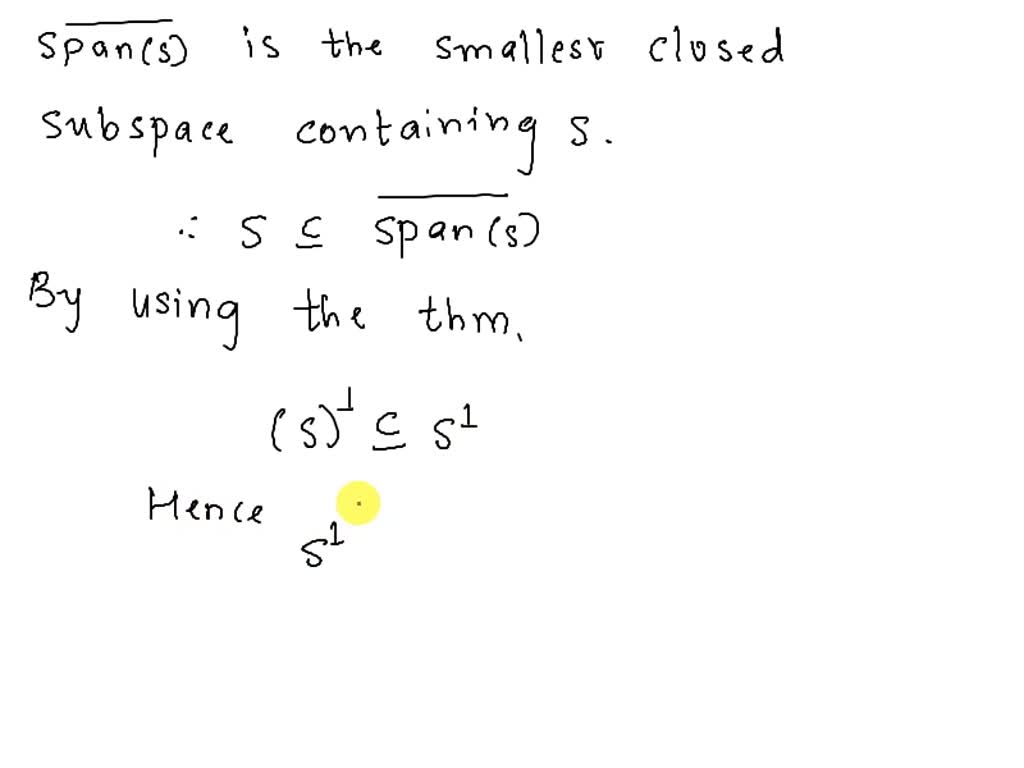 $\overline{span(s)}$ is the smallest closed
subspace containing s.
∴ S ⊆ $\overline{span(s)}$
By using the thm.
(s)^⊥ ⊆ s^⊥
Hence
s^⊥